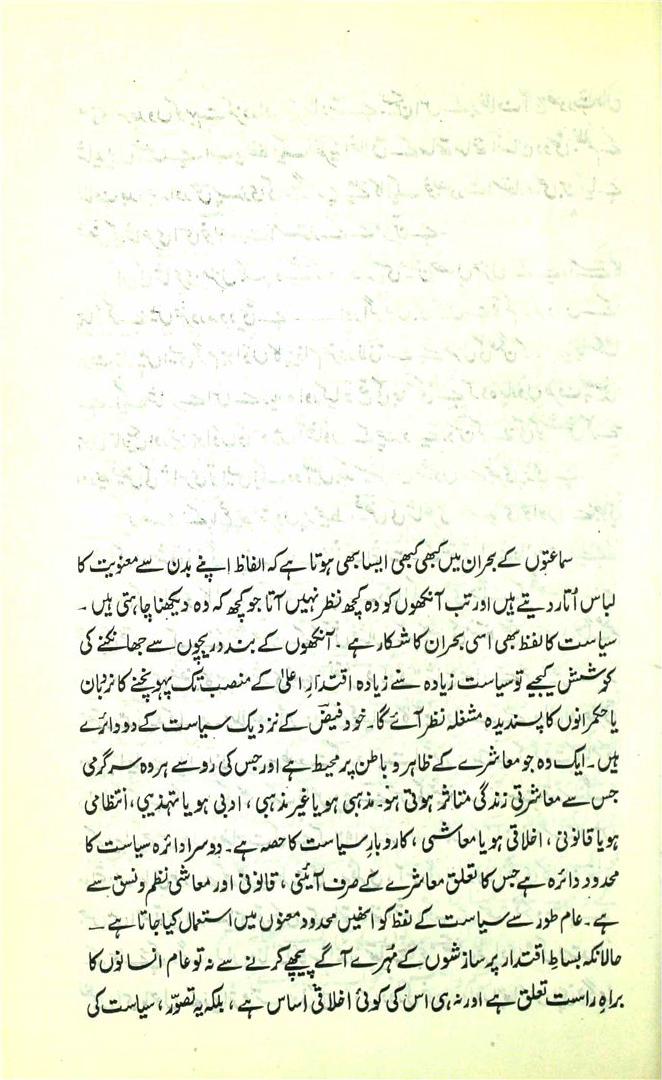 سماعتوں کے بحران میں کبھی کبھی ایسا بھی ہوتا ہے کہ الفاظ اپنے بدن سے معنویت کا
لباس اُتار دیتے ہیں اور تب آنکھوں کو وہ کچھ نظر نہیں آتا جو کچھ کہ وہ دیکھنا چاہتی ہیں ۔
سیاست کا لفظ بھی اسی بحران کا شکار ہے ۔ آنکھوں کے بند دریچوں سے جھانکنے کی
کوشش کیجیے تو سیاست زیادہ سے زیادہ اقتدارِ اعلیٰ کے منصب تک پہونچنے کا نردبان
یا حکمرانوں کا پسندیدہ مشغلہ نظر آئے گا۔ خود فیضؔ کے نزدیک سیاست کے دو دائرے
ہیں۔ ایک وہ جو معاشرے کے ظاہر و باطن پر محیط ہے اور جس کی رو سے ہر وہ سرگرمی
جس سے معاشرتی زندگی متاثر ہوتی ہو۔ مذہبی ہو یا غیر مذہبی ، ادبی ہو یا تہذیبی، انتظامی
ہو یا قانونی ، اخلاقی ہو یا معاشی ، کاروبارِ سیاست کا حصہ ہے۔ دوسرا دائرہ سیاست کا
محدود دائرہ ہے جس کا تعلق معاشرے کے صرف آئینی ، قانونی اور معاشی نظم و نسق سے
ہے۔ عام طور سے سیاست کے لفظ کو انھیں محدود معنوں میں استعمال کیا جاتا ہے ۔
حالانکہ بساطِ اقتدار پر سازشوں کے مُہرے آگے پیچھے کرنے سے نہ تو عام انسانوں کا
براہِ راست تعلق ہے اور نہ ہی اس کی کوئی اخلاقی اساس ہے ، بلکہ یہ تصوّر ، سیاست کی